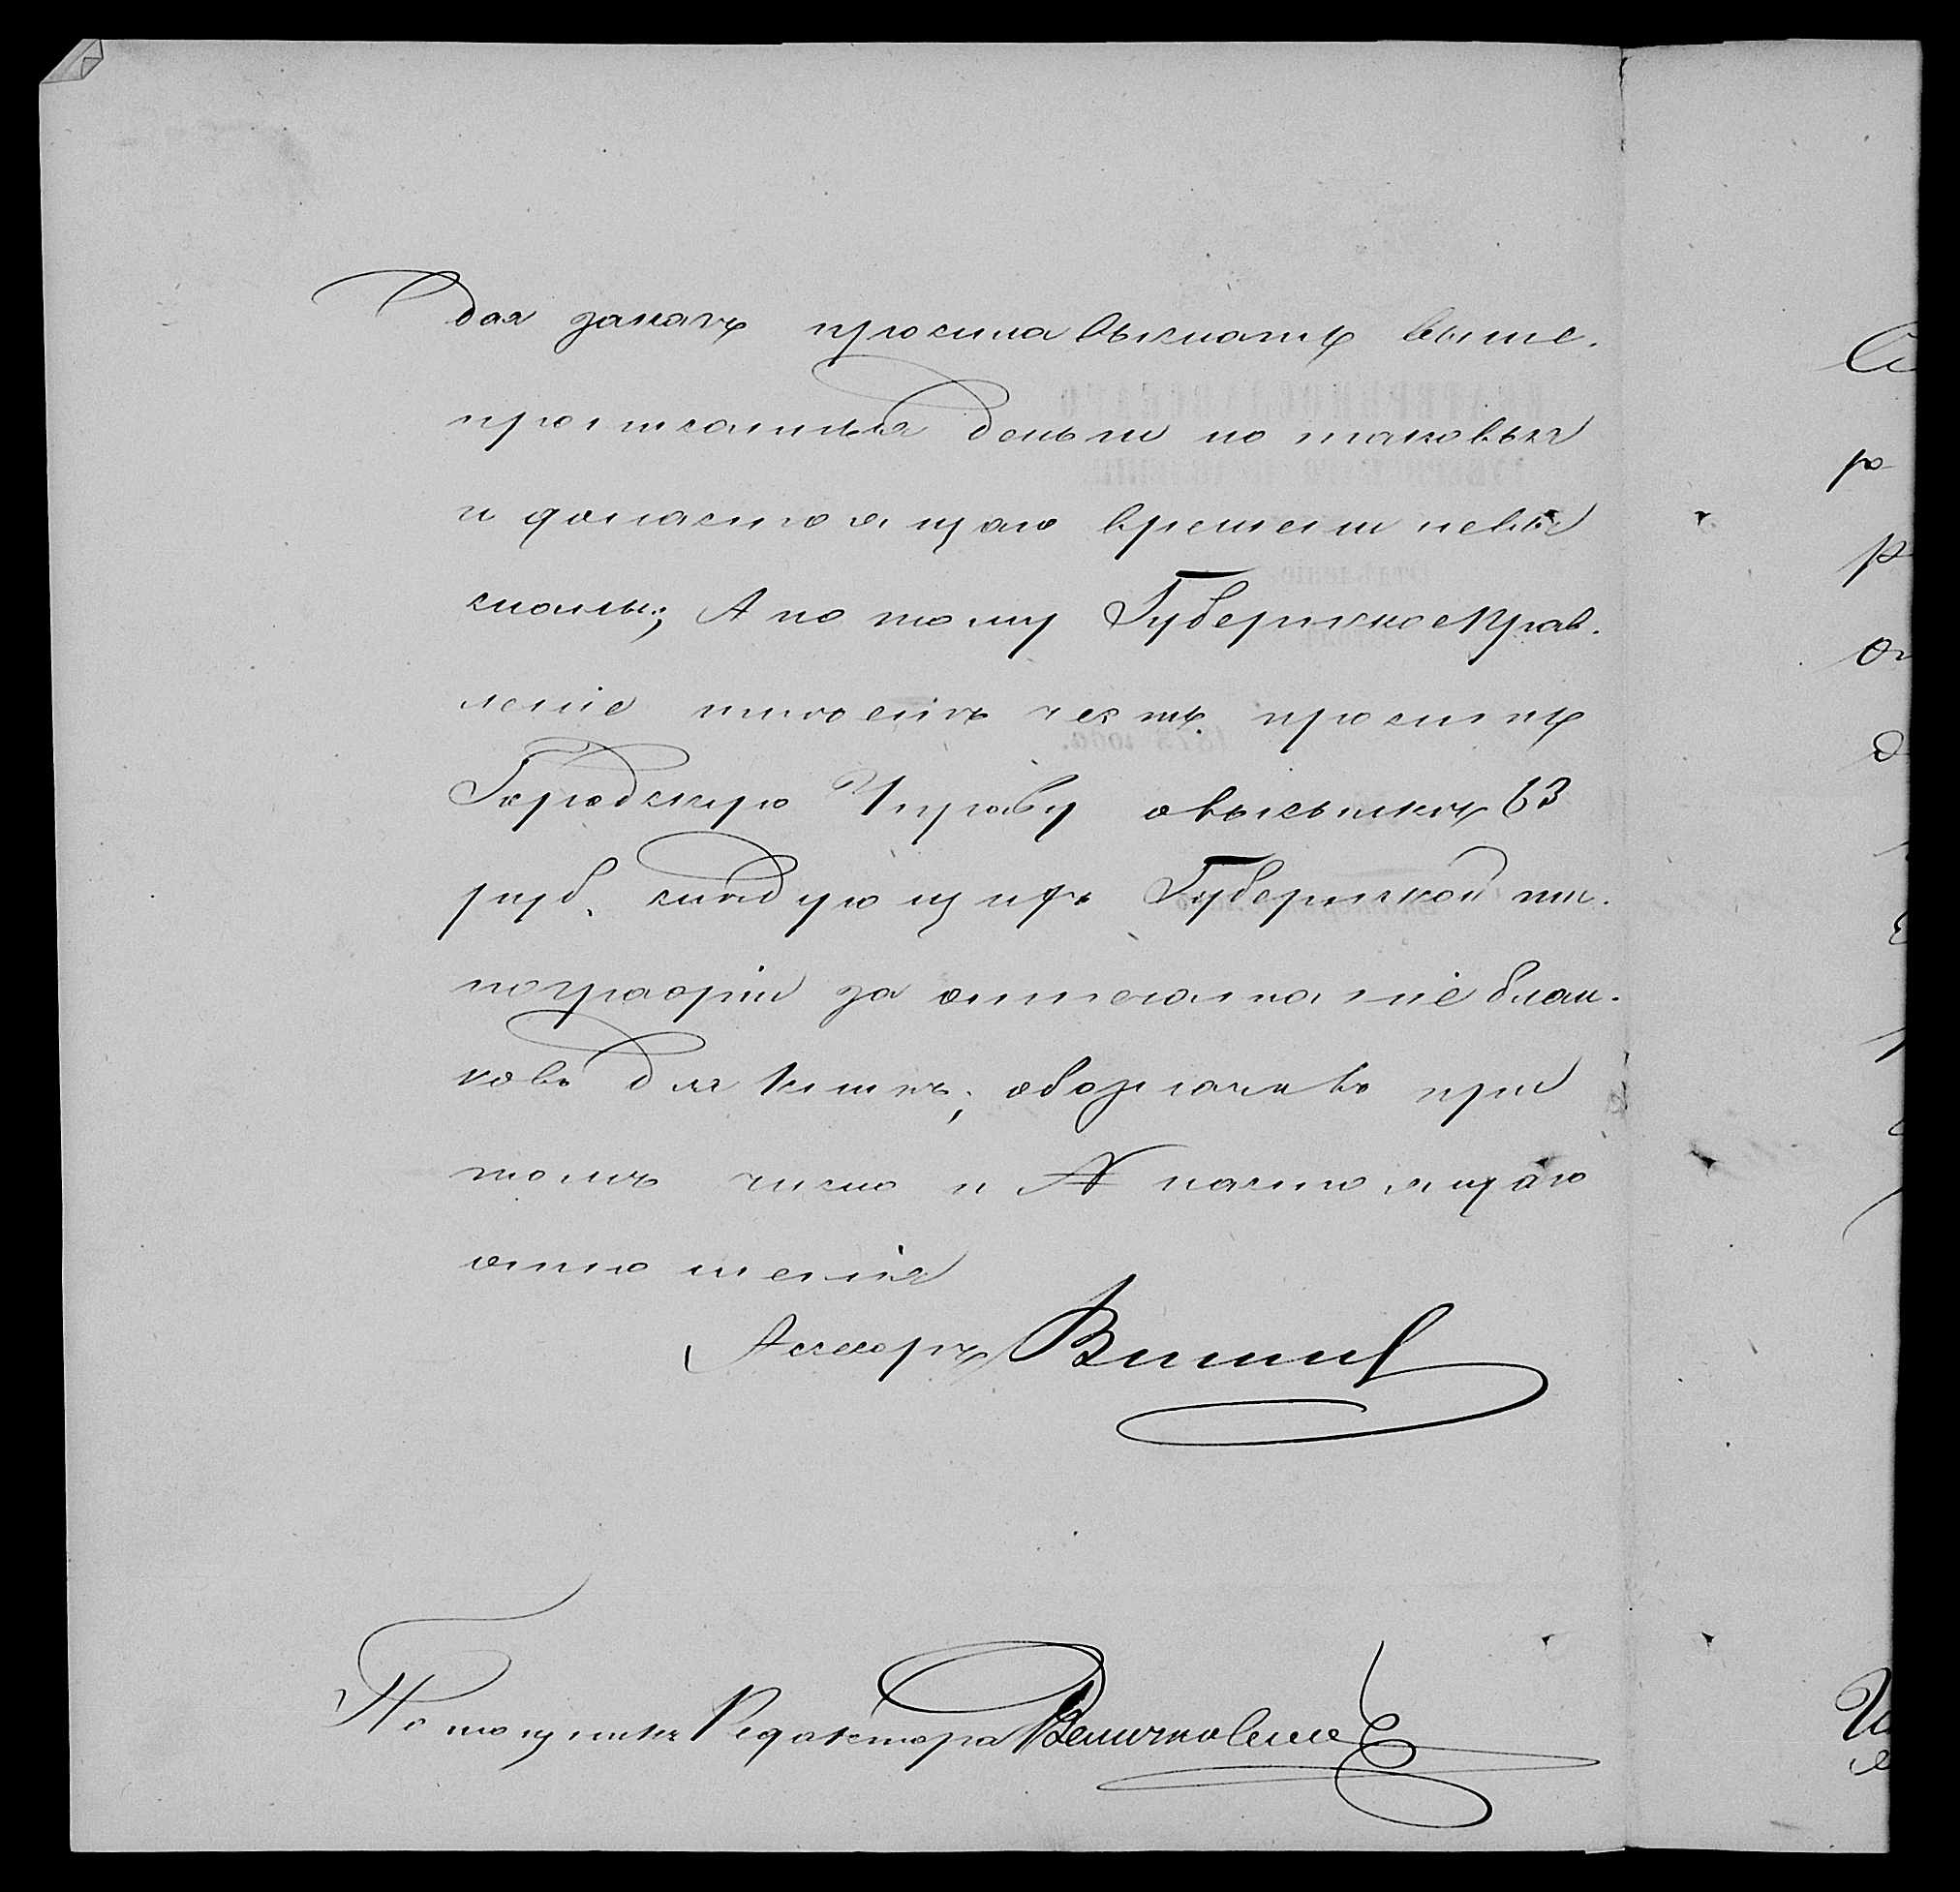 дая заказъ просила выслать выше.
прописанныя деньги но таковыя
и до настоящаго времени невы
сланы; А по тому Губернское Прав.
леніе имѣетъ честь просить
Городскую Управу о высылкѣ 63
руб. слѣдующихъ Губернской ти.
пографіи за отпечатаніе блан.
ковъ для книгъ; обозначивъ при
томъ число и № настоящаго
отношенія
Ассесоръ
Помощникъ Редактора